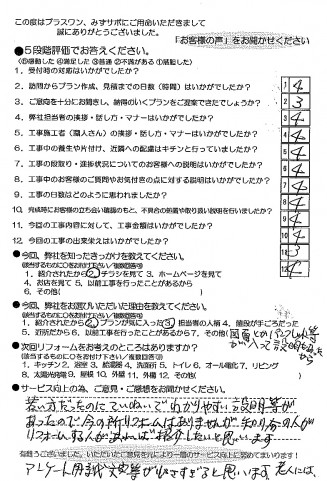 この度はプラスワン、みすサポにご用命いただきまして
誠にありがとうございました。
「お客様の声」をお聞かせください
●5段階評価でお答えください。
(⑤感動した ④満足した ③普通 ②不満がある ①落胆した)
1. 受付時の対応はいかがでしたか? 4
2. 訪問からプラン作成、見積までの日数(時間)はいかがでしたか? 4
3. ご意見を十分にお聞きし、納得のいくプランをご提案できたでしょうか? 3
4. 弊社担当者の挨拶・話し方・マナーはいかがでしたか? 4
5. 工事施工者(職人さん)の挨拶・話し方・マナーはいかがでしたか? 4
6. 工事中の養生や片付け、近隣への配慮はキチンと行っていましたか? 4
7. 工事の段取り・進捗状況についてのお客様への説明はいかがでしたか? 4
8. 工事中のお客様のご質問やお気付きの点に対する説明はいかがでしたか? 4
9. 工事の日数はどのように思われましたか? 4
10. 完成時にお客様の立ち会い確認のもと、不具合の処置や取り扱い説明を行いましたか? 4
11. 今回の工事内容に対して、工事金額はいかがでしたか? 3
12. 今回の工事の出来栄えはいかがでしたか? 4
●今回、弊社を知ったきっかけを教えてください。
(該当するものに○をお付け下さい/複数回答可)
1. 紹介されたから ②. チラシを見て 3. ホームページを見て
4. お店を見て 5. 以前工事を行ったことがあるから
6. その他( )
●今回、弊社をお選びいただいた理由を教えてください。
(該当するものに○をお付け下さい/複数回答可)
1. 紹介されたから ②. プランが気に入った ③. 担当者の人柄 4. 値段が手ごろだった
5. 近所だから 6. 以前工事を行ったことがあるから 7. その他(
●次回リフォームをお考えのところはありますか?
(該当するものに○をお付け下さい/複数回答可)
1. キッチン 2. 浴室 3. 給湯器 4. 洗面所 5. トイレ 6. オール電化 7. リビング
8. 太陽光発電 9. 屋根 10. 外壁 11. 外構 12. その他( )
●サービス向上の為、ご意見・ご感想をお聞かせください。
若い方だったのにていねいでわかりやすい説明等が
あったので 今の所リフォームはありませんが 知り合いの人が
リフォームする人が 居れば紹介したいと思います
有難うございました。いただいたご意見を元により一層のサービス向上に努めてまいります!
アンケート用紙 文字等が小さすぎると思います 老人には